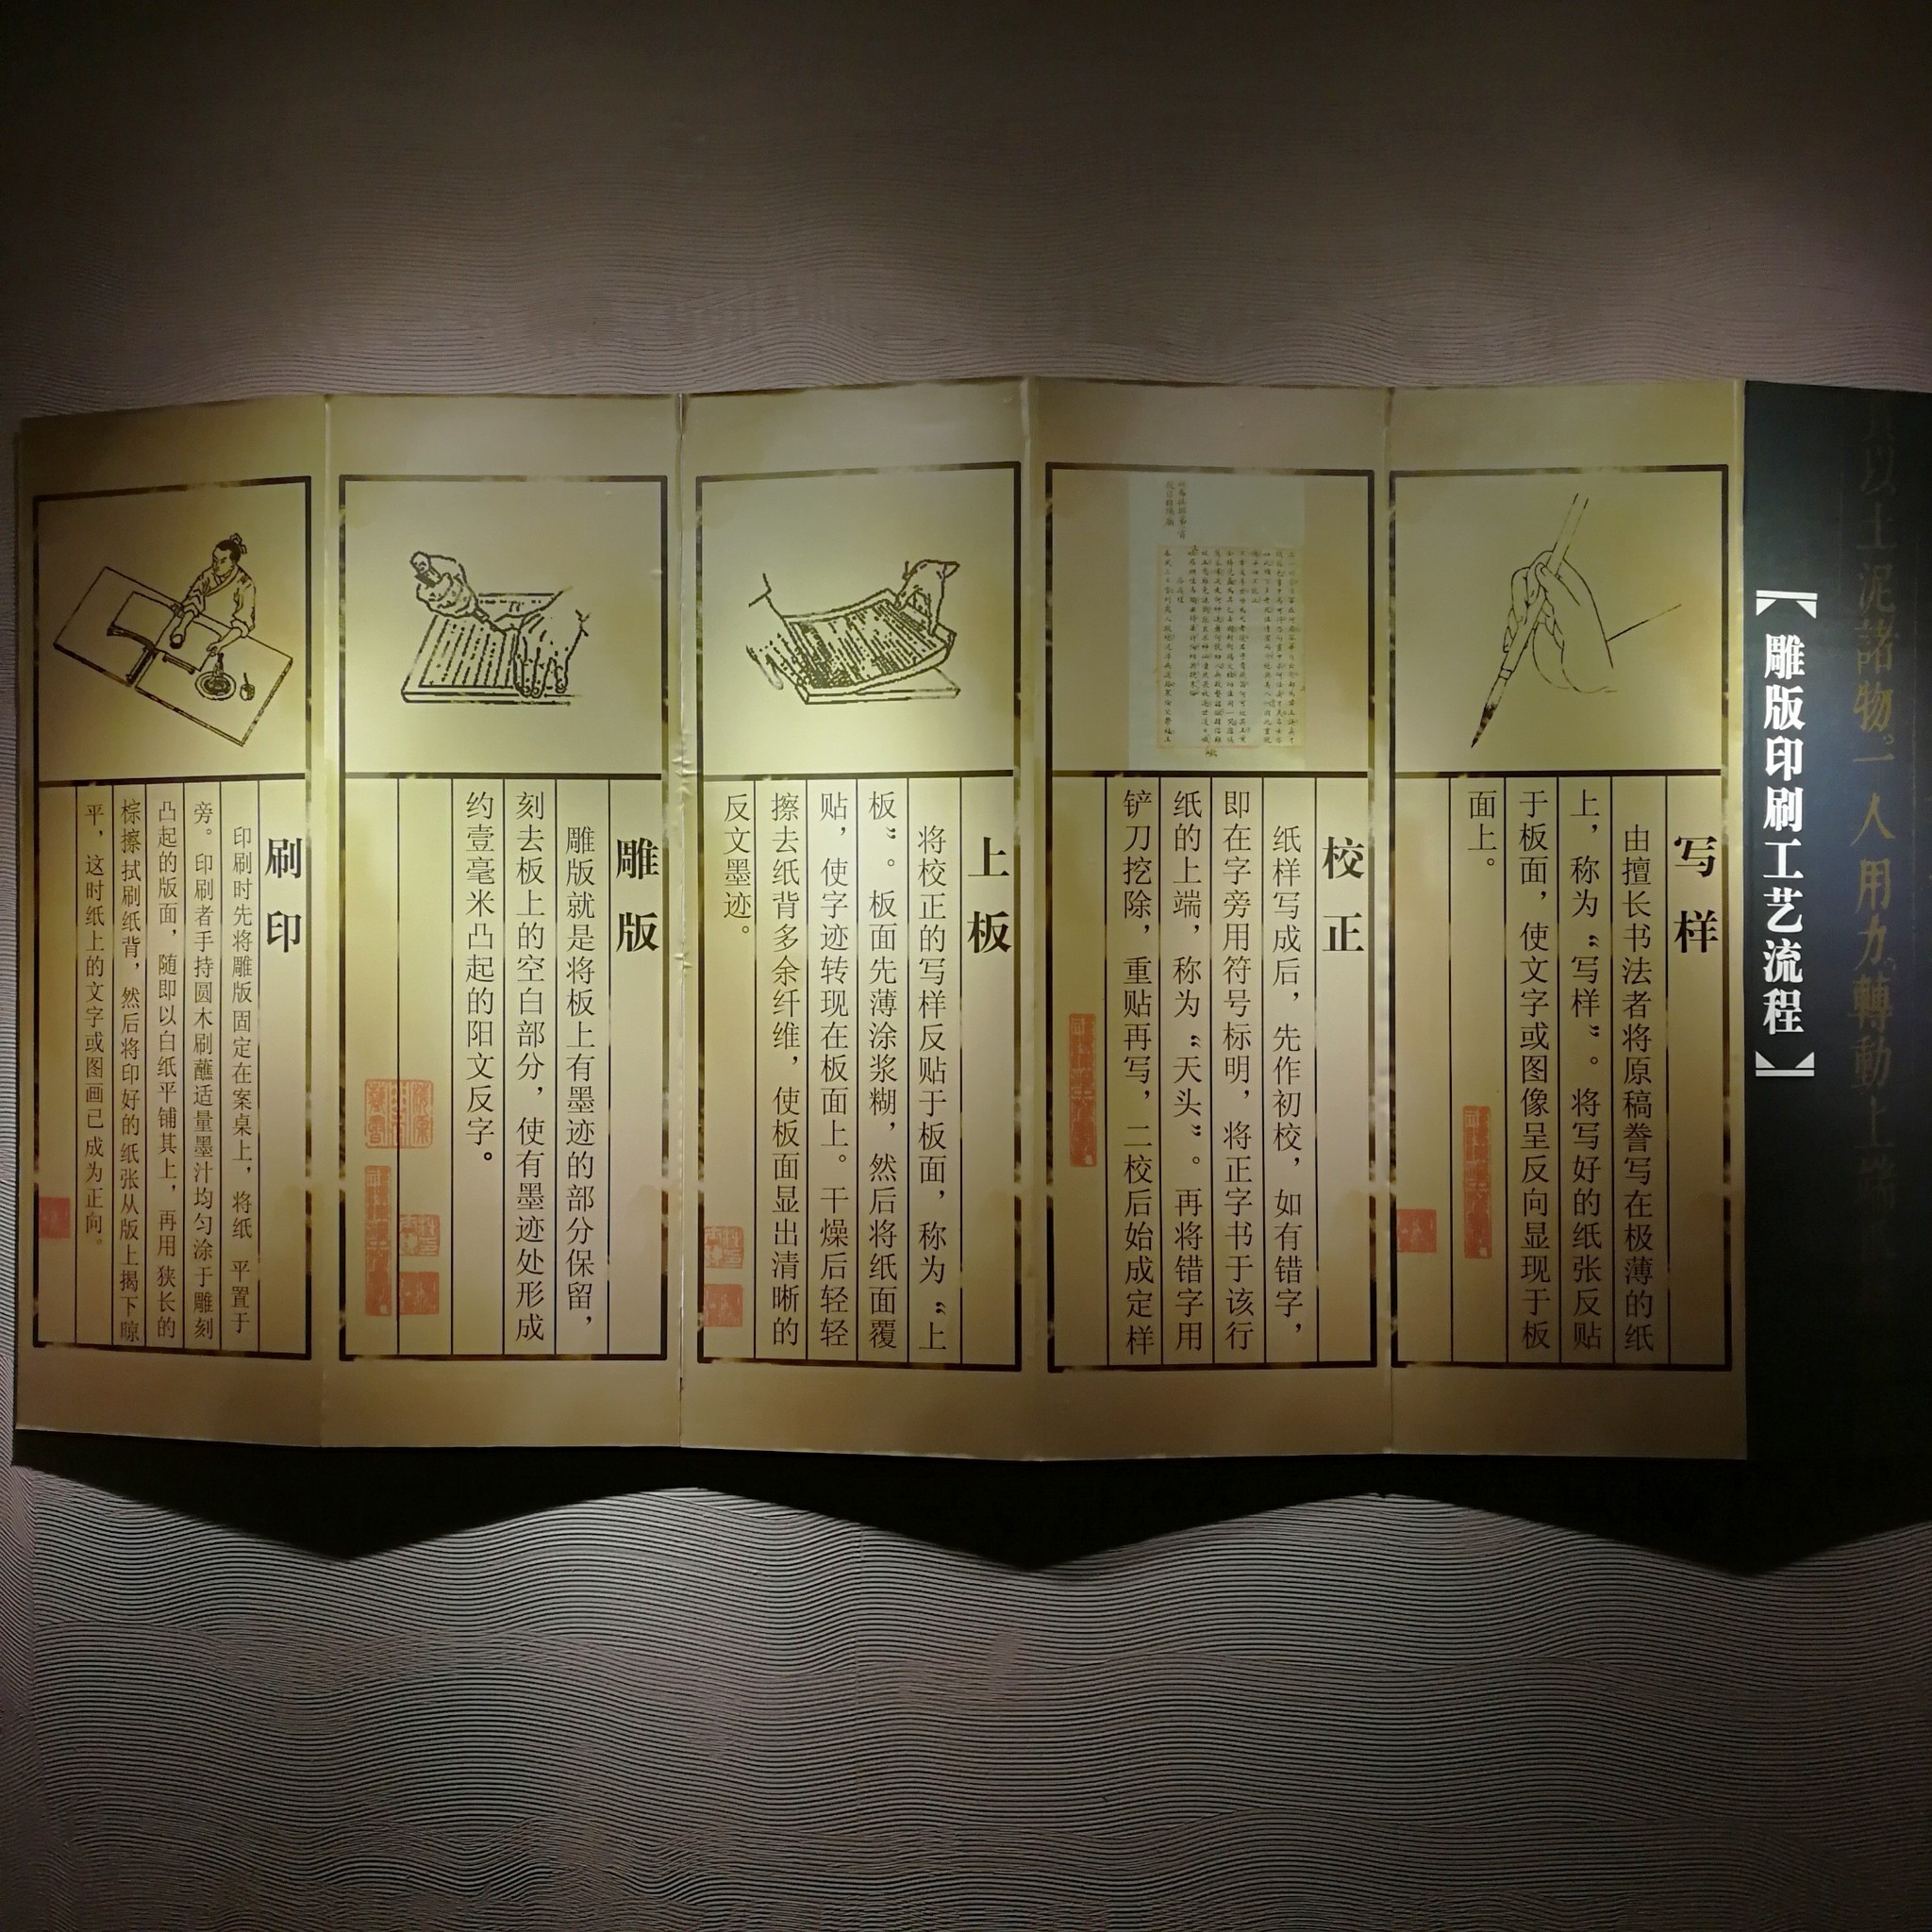 以土泥諸物。一人用力轉動上端
【雕版印刷工艺流程】
写样
由擅长书法者将原稿誊写在极薄的纸
上，称为“写样”。将写好的纸张反贴
于板面，使文字或图像呈反向显现于板
面上。
校正
纸样写成后，先作初校，如有错字，
即在字旁用符号标明，将正字书于该行
纸的上端，称为“天头”。再将错字用
铲刀挖除，重贴再写，二校后始成定样
上板
将校正的写样反贴于板面，称为“上
板”。板面先薄涂浆糊，然后将纸面覆
贴，使字迹转现在板面上。干燥后轻轻
擦去纸背多余纤维，使板面显出清晰的
反文墨迹。
雕版
雕版就是将板上有墨迹的部分保留，
刻去板上的空白部分，使有墨迹处形成
约壹毫米凸起的阳文反字。
刷印
印刷时先将雕版固定在案桌上，将纸 平置于
旁。印刷者手持圆木刷蘸适量墨汁均匀涂于雕刻
凸起的版面，随即以白纸平铺其上，再用狭长的
棕擦拭刷纸背，然后将印好的纸张从版上揭下晾
平，这时纸上的文字或图画己成为正向。